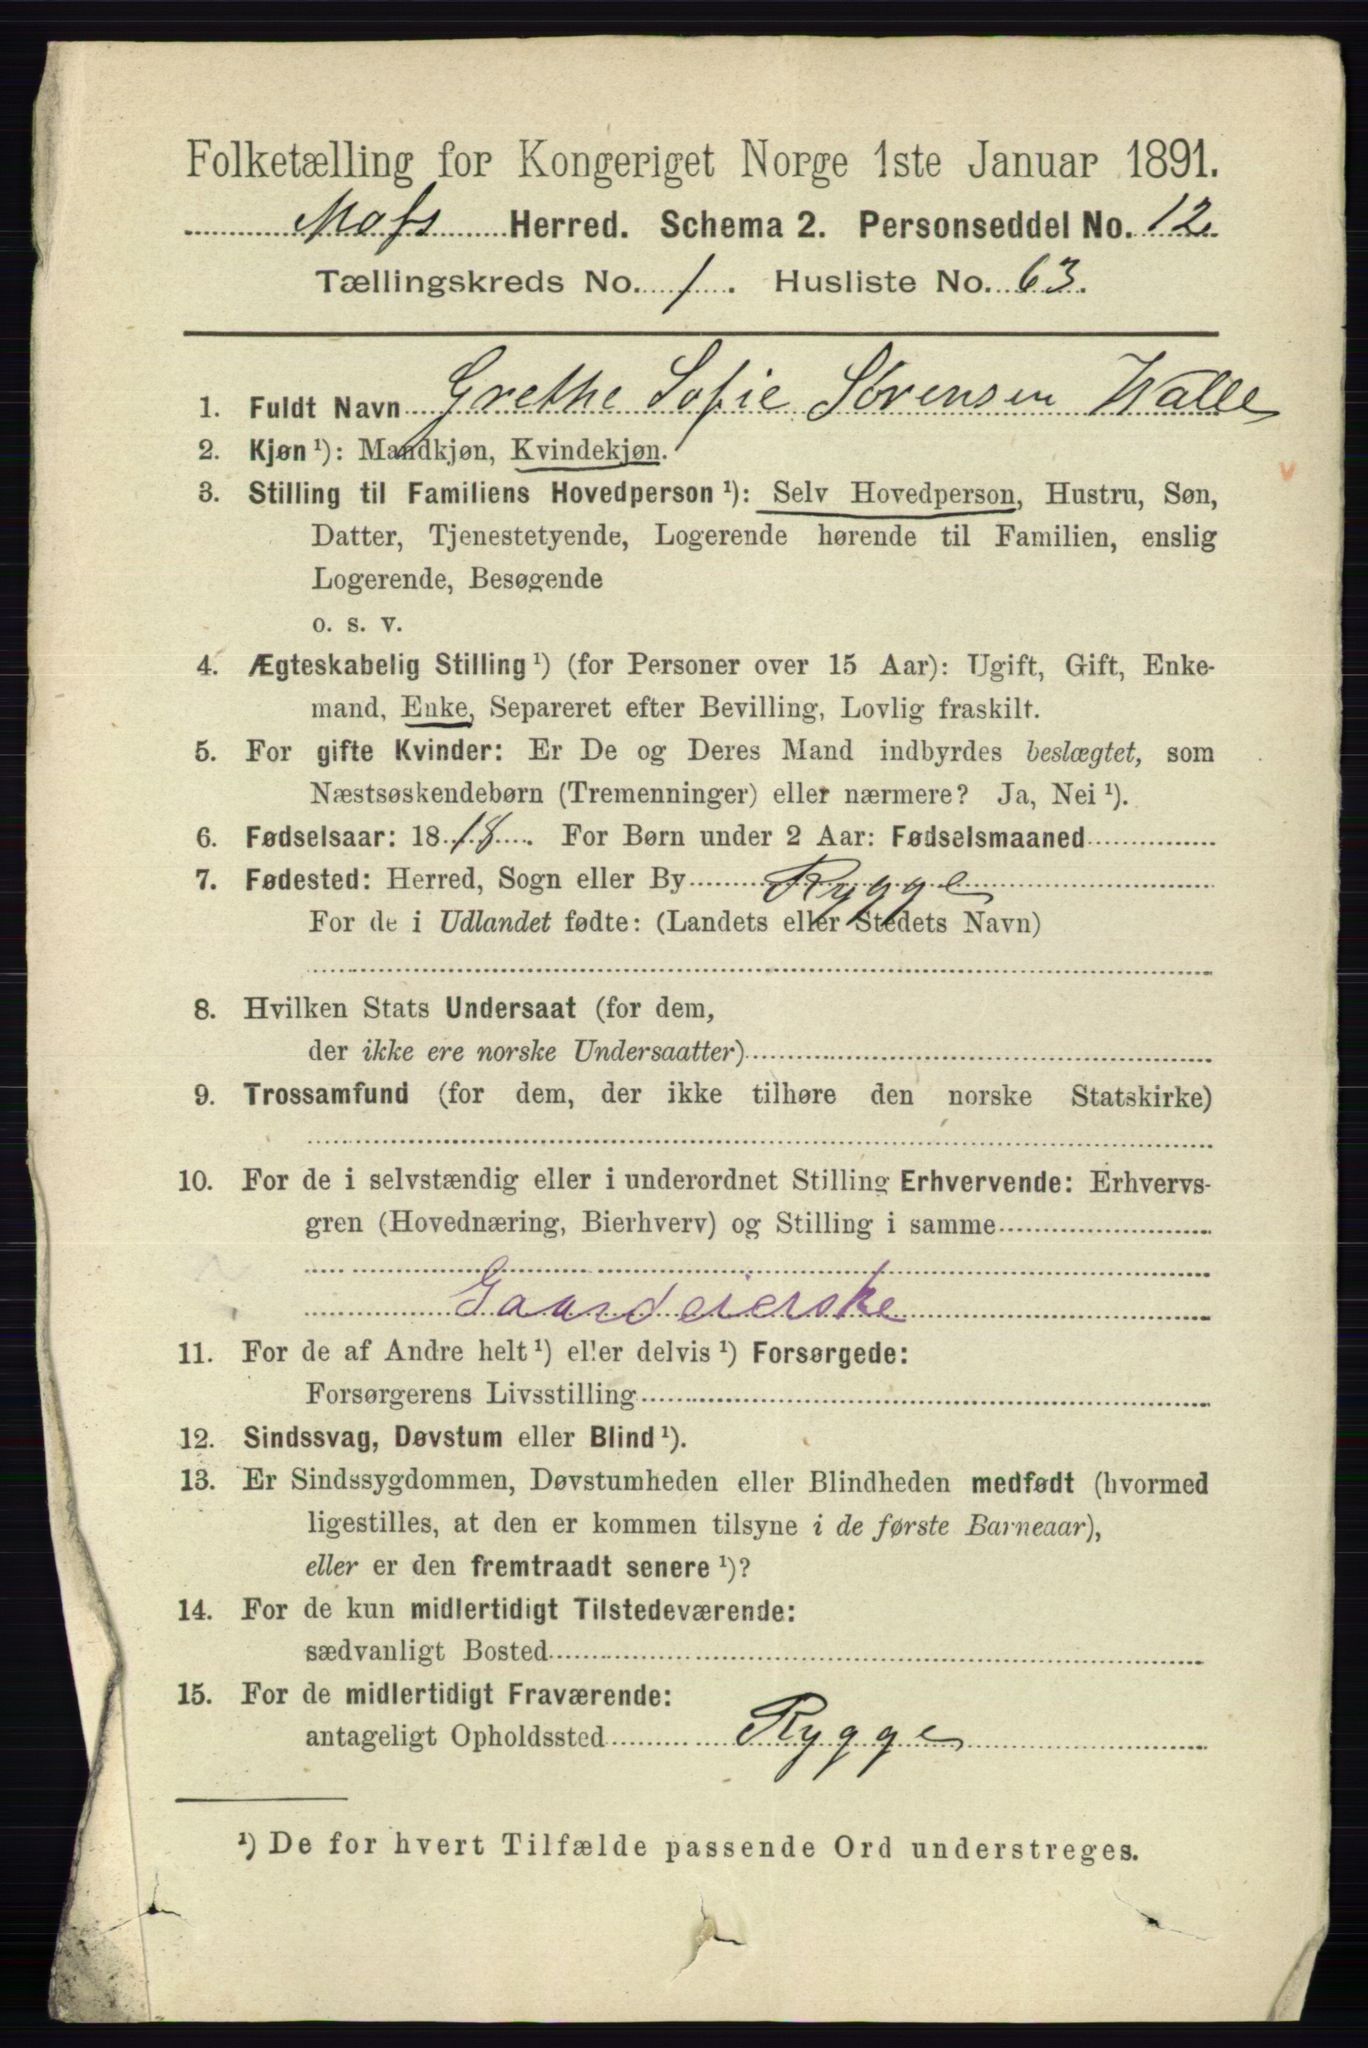 Folketælling for Kongeriget Norge 1ste Januar 1891.
Moss Herred. Schema 2. Personseddel No. 12.
Tællingskreds No. 1. Husliste No. 63.
1. Fuldt Navn Grethe Sofie Sørensen Walle
2. Kjøn ¹): Mandkjøn, Kvindekjøn.
3. Stilling til Familiens Hovedperson ¹): Selv Hovedperson, Hustru, Søn,
Datter, Tjenestetyende, Logerende hørende til Familien, enslig
Logerende, Besøgende
o. s. v.
4. Ægteskabelig Stilling ¹) (for Personer over 15 Aar): Ugift, Gift, Enke-
mand, Enke, Separeret efter Bevilling, Lovlig fraskilt.
5. For gifte Kvinder: Er De og Deres Mand indbyrdes beslægtet, som
Næstsøskendebørn (Tremenninger) eller nærmere? Ja, Nei ¹).
6. Fødselsaar: 1818. For Børn under 2 Aar: Fødselsmaaned
7. Fødested: Herred, Sogn eller By Rygge
For de i Udlandet fødte: (Landets eller Stedets Navn)
8. Hvilken Stats Undersaat (for dem,
der ikke ere norske Undersaatter)
9. Trossamfund (for dem, der ikke tilhøre den norske Statskirke)
10. For de i selvstændig eller i underordnet Stilling Erhvervende: Erhvervs-
gren (Hovednæring, Bierhverv) og Stilling i samme
Gaardeierske
11. For de af Andre helt ¹) eller delvis ¹) Forsørgede:
Forsørgerens Livsstilling
12. Sindssvag, Døvstum eller Blind ¹).
13. Er Sindssygdommen, Døvstumheden eller Blindheden medfødt (hvormed
ligestilles, at den er kommen tilsyne i de første Barneaar),
eller er den fremtraadt senere ¹)?
14. For de kun midlertidigt Tilstedeværende:
sædvanligt Bosted
15. For de midlertidigt Fraværende:
antageligt Opholdssted Rygge
¹) De for hvert Tilfælde passende Ord understreges.